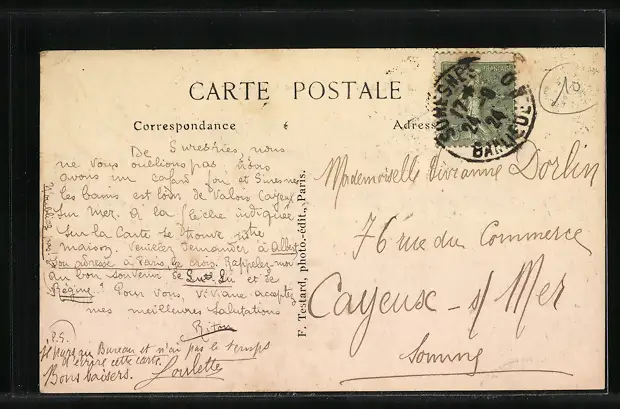 CARTE POSTALE
Correspondance
Adresse
De Suresnes, nous
ne vous oublions pas nous
avons un cafard fou et Suresnes
les bains est loin de Valois Cayeux
sur Mer. A la flèche indiquée
sur la Carte se trouve notre
maison. Veuillez demander à Albert
son adresse à Paris, je crois. Rappelez-moi
au bon souvenir de et de
Régine..? Pour vous, Viviane acceptez
mes meilleures salutations
Riton
P.S.
Je pars au Bureau et n'ai pas le temps
d'écrire cette carte.
Bons baisers. Loulette
F. Testard, photo.-édit., Paris.
Mademoiselle Vivianne Dorlin
76 rue du Commerce
Cayeux-s/Mer
Somme
SURESNES
17 *
24
BANLIEUE
10